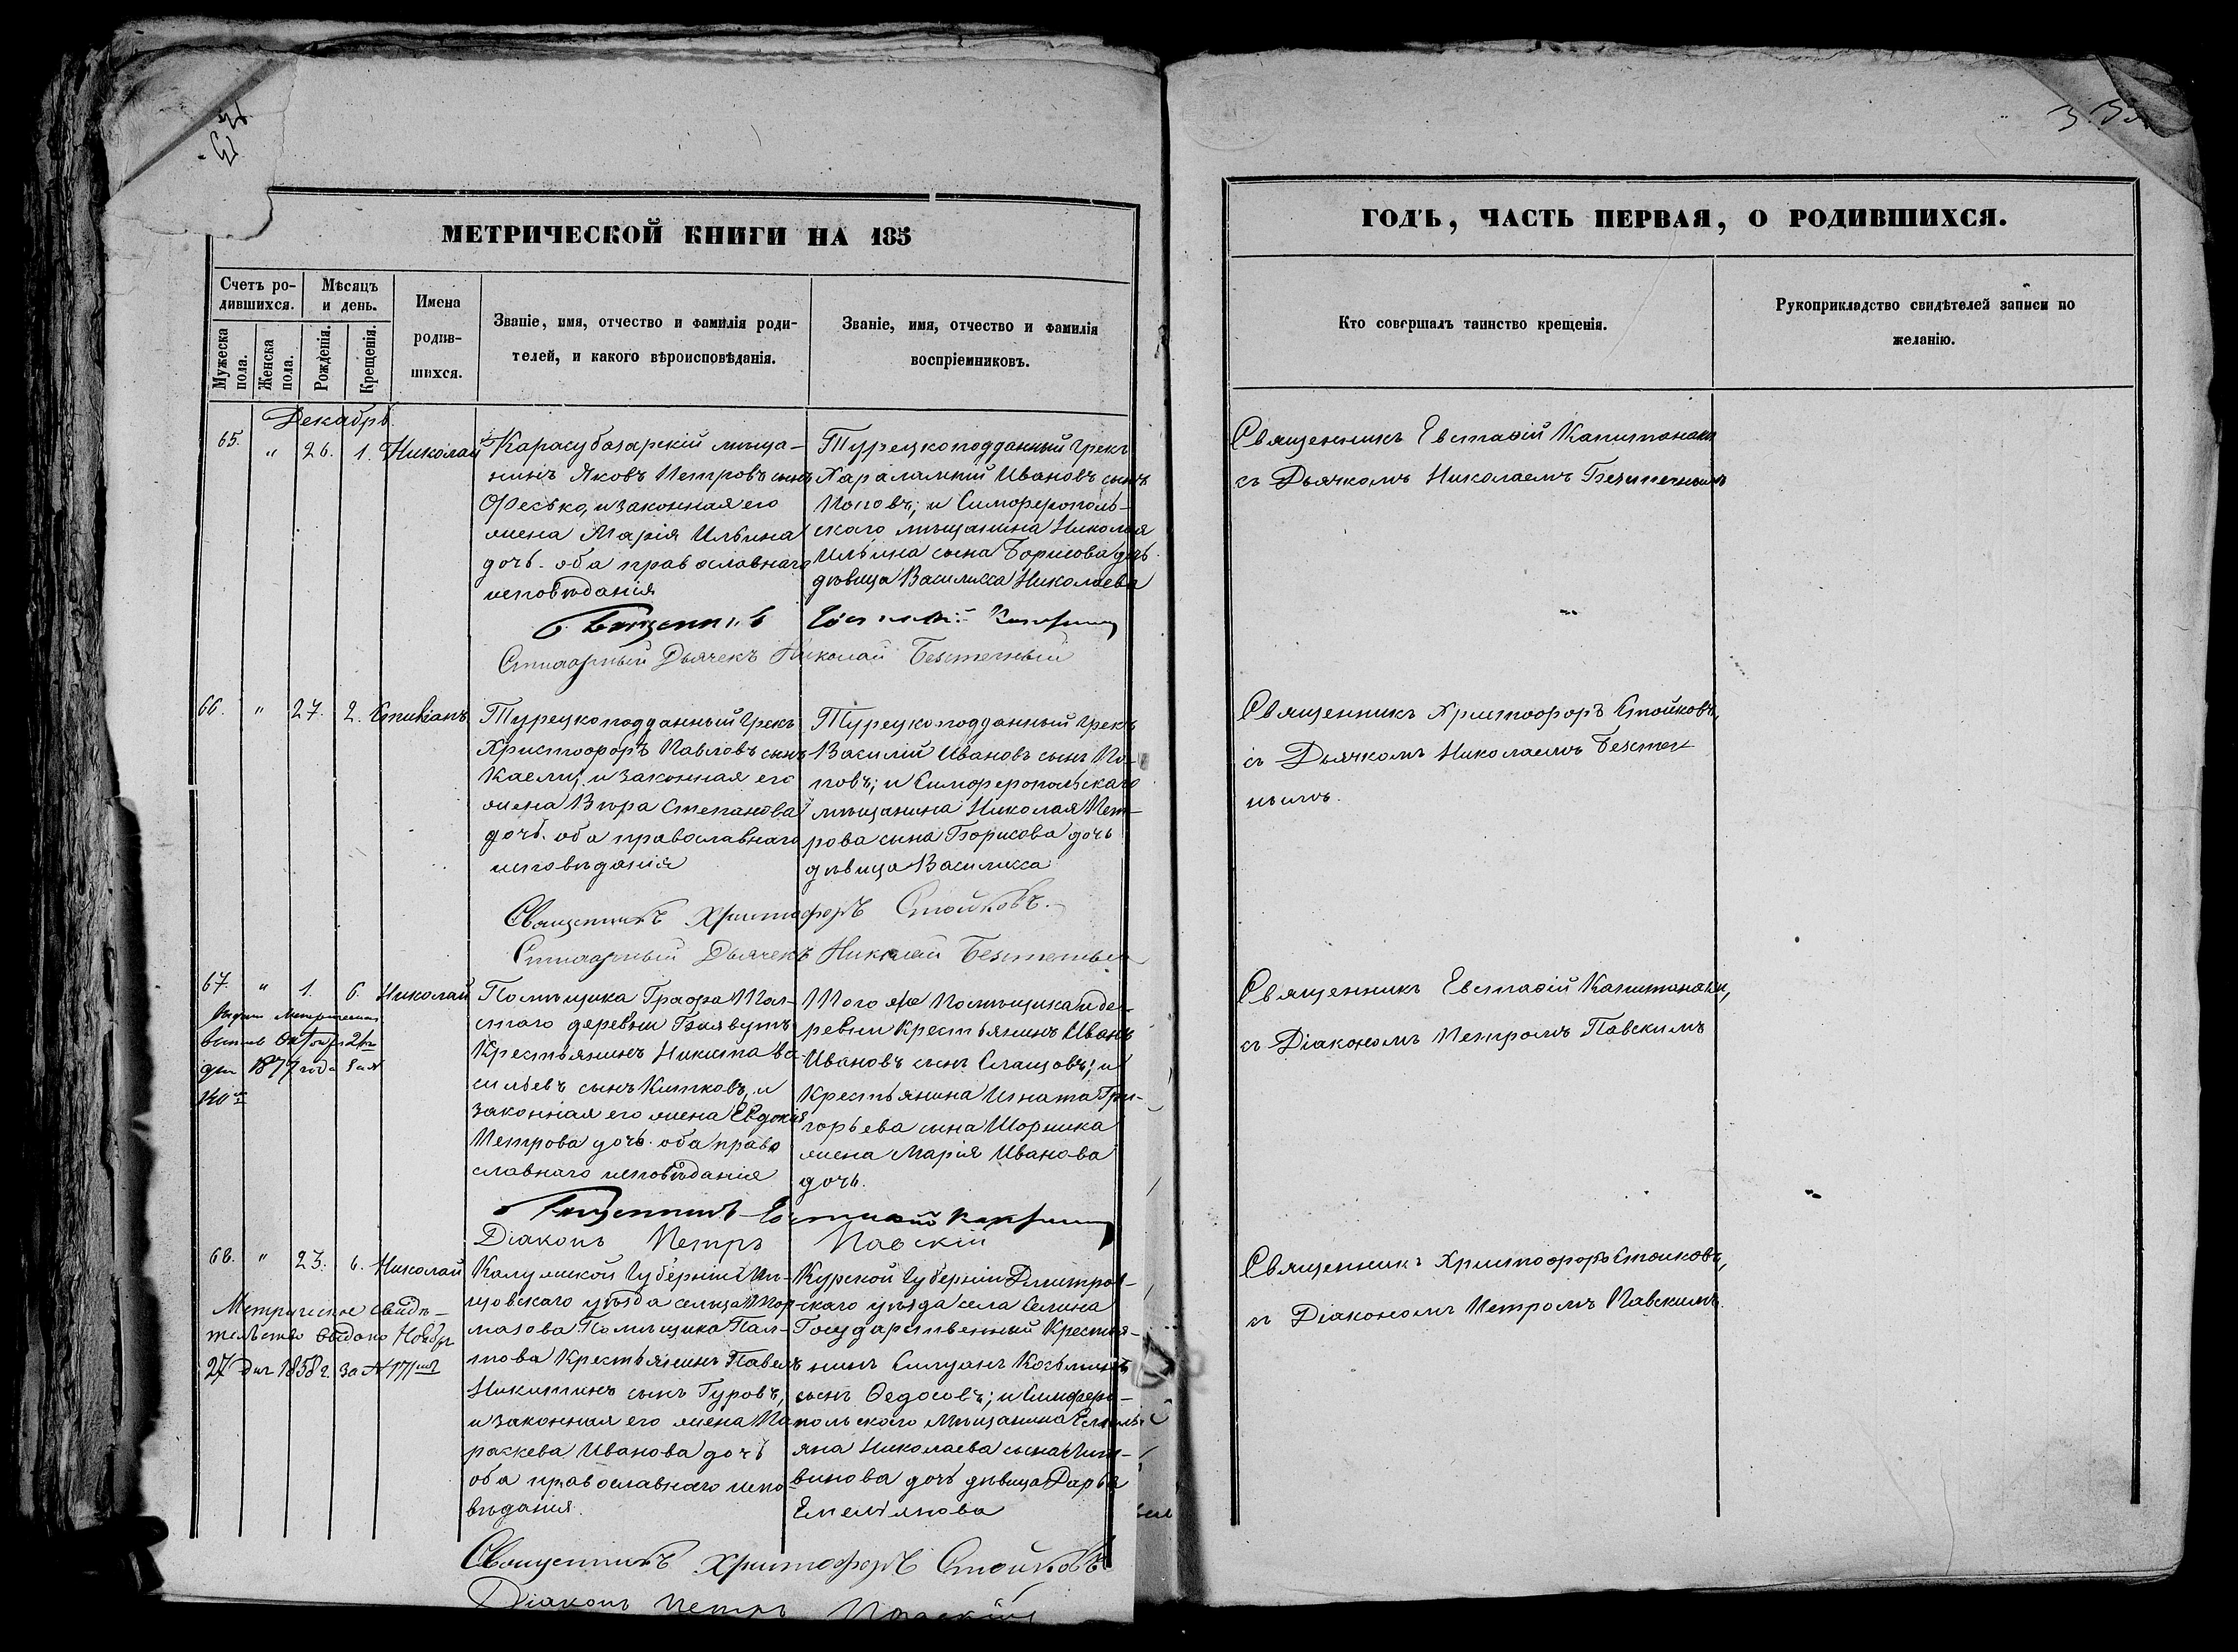 МЕТРИЧЕСКОЙ КНИГИ НА 185
Счетъ ро-
дившихся.
Мѣсяцъ
и день.
Мужеска
пола.
Женска
пола.
Рожденія.
Крещенія.
Имена
родив-
шихся.
Званіе, имя, отчество и фамилія роди-
телей, и какого вѣроисповѣданія.
Званіе, имя, отчество и фамилія
воспріемниковъ.
Декабрь.
65. " 26. 1. Николай
Карасубазарскій мѣща-
нинъ Яковъ Петровъ сынъ
Фесько, и законная его
жена Марія Ильина
дочь. оба православнаго
исповѣданія
Турецкоподданный Грекъ
Харалампій Ивановъ сынъ
Поповъ; и Симферополь-
скаго мѣщанина Николая
Ильина сына Борисова дочь
дѣвица Василисса Николаева
Священникъ Евстафій
Стихарный Дьячекъ Николай Безпечный
66. " 27. 2. Стиліанъ
Турецкоподданный Грекъ
Христофоръ Павловъ сынъ
и законная его
жена Вѣра Степанова
дочь. оба православнаго
исповѣданія
Турецкоподданный Грекъ
Василій Ивановъ сынъ По-
повъ; и Симферопольскаго
мѣщанина Николая Пет-
рова сына Борисова дочь
дѣвица Василисса
Священникъ Христофоръ Стойковъ.
Стихарный Дьячекъ Николай Безпечный
67. " 1. 6. Николай
Октября
дня 1877 года за №
Помѣщика Графа Тол-
стаго деревни
Крестьянинъ Никита Ва-
сильевъ сынъ Китковъ, и
законная его жена Евдокія
Петрова дочь. оба право
славнаго исповѣданія
Того же Помѣщика и де-
ревни Крестьянинъ Иванъ
Ивановъ сынъ Слащовъ; и
Крестьянина Игната Гри-
горьева сына Шорника
жена Марія Иванова
дочь.
Священникъ Евстафій
Діаконъ Петръ Павскій
68. " 23. 6. Николай
Метрическое свидѣ-
тельство выдано Ноября
27 дня 1858 г. за №
Калужской Губерніи
уѣзда сельца Тор-
мазова Помѣщика
Крестьянинъ Павелъ
Никитинъ сынъ Гуровъ,
и законная его жена Па
раскева Иванова дочь
оба православнаго испо
вѣданія.
Курской Губерніи Дмитров-
скаго уѣзда села Селина
Государственный Крестья-
нинъ Козьминъ
сынъ Ѳедосовъ; и Симферо-
польскаго Мѣщанина Емель-
яна Николаева сына Лит-
винова дочь дѣвица Дарья
Емельянова
Священникъ Христофоръ Стойковъ
Діаконъ Петръ Павскій
ГОДЪ, ЧАСТЬ ПЕРВАЯ, О РОДИВШИХСЯ.
Кто совершалъ таинство крещенія.
Рукоприкладство свидѣтелей записи по
желанію.
Священникъ Евстафій Капитанаки
съ Дьячкомъ Николаемъ Безпечнымъ
Священникъ Христофоръ Стойковъ,
съ Дьячкомъ Николаемъ Безпеч
нымъ.
Священникъ Евстафій Капитанаки,
съ Діакономъ Петромъ Павскимъ
Священникъ Христофоръ Стойковъ,
съ Діакономъ Петромъ Павскимъ.